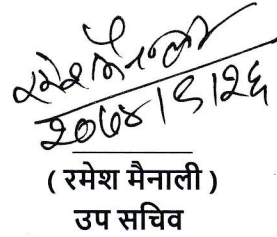 रमेश मैनाली
२०७४।९।२६
( रमेश मैनाली )
उप सचिव